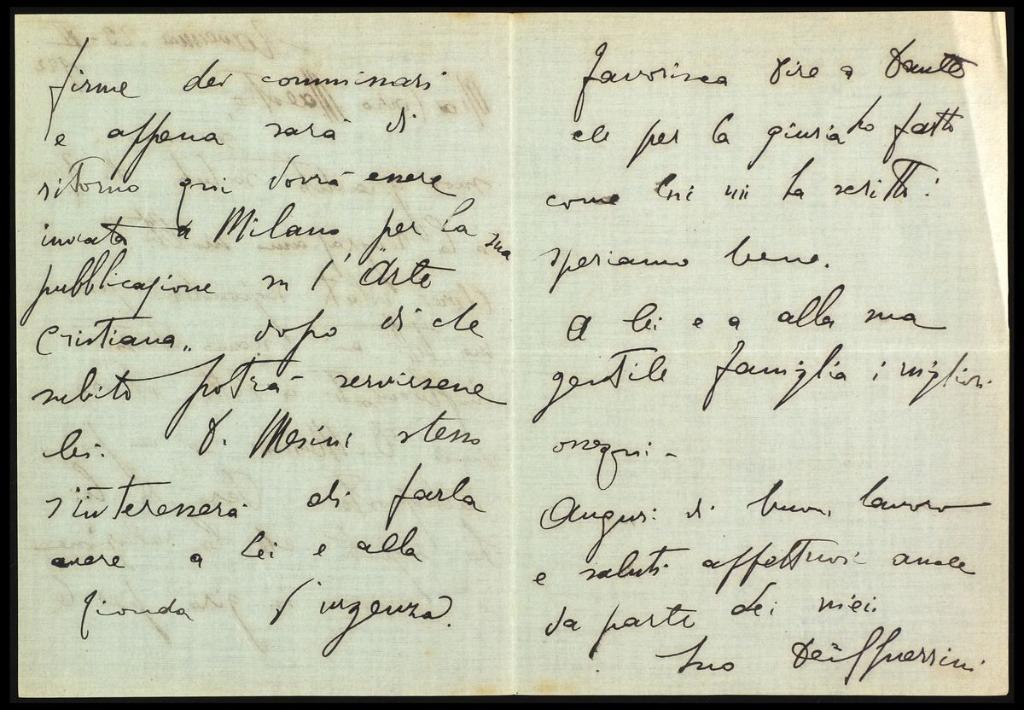 firme dei commissari
e appena sarà di
ritorno qui dovrà essere
inviata a Milano per la sua
pubblicazione su l'"Arte
Cristiana„ dopo di che
subito potrà servirsene
lei. D. Mesini stesso
s'interesserà di farla
avere a Lei e alla
d'urgenza.
favorisca dire a Dante
che per la giuria ho fatto
come lui mi ha scritto:
speriamo bene.
A lei e a alla sua
gentile famiglia i migliori
ossequi -
Auguri di buon lavoro
e saluti affettuosi anche
da parte dei miei
Suo Guerrini